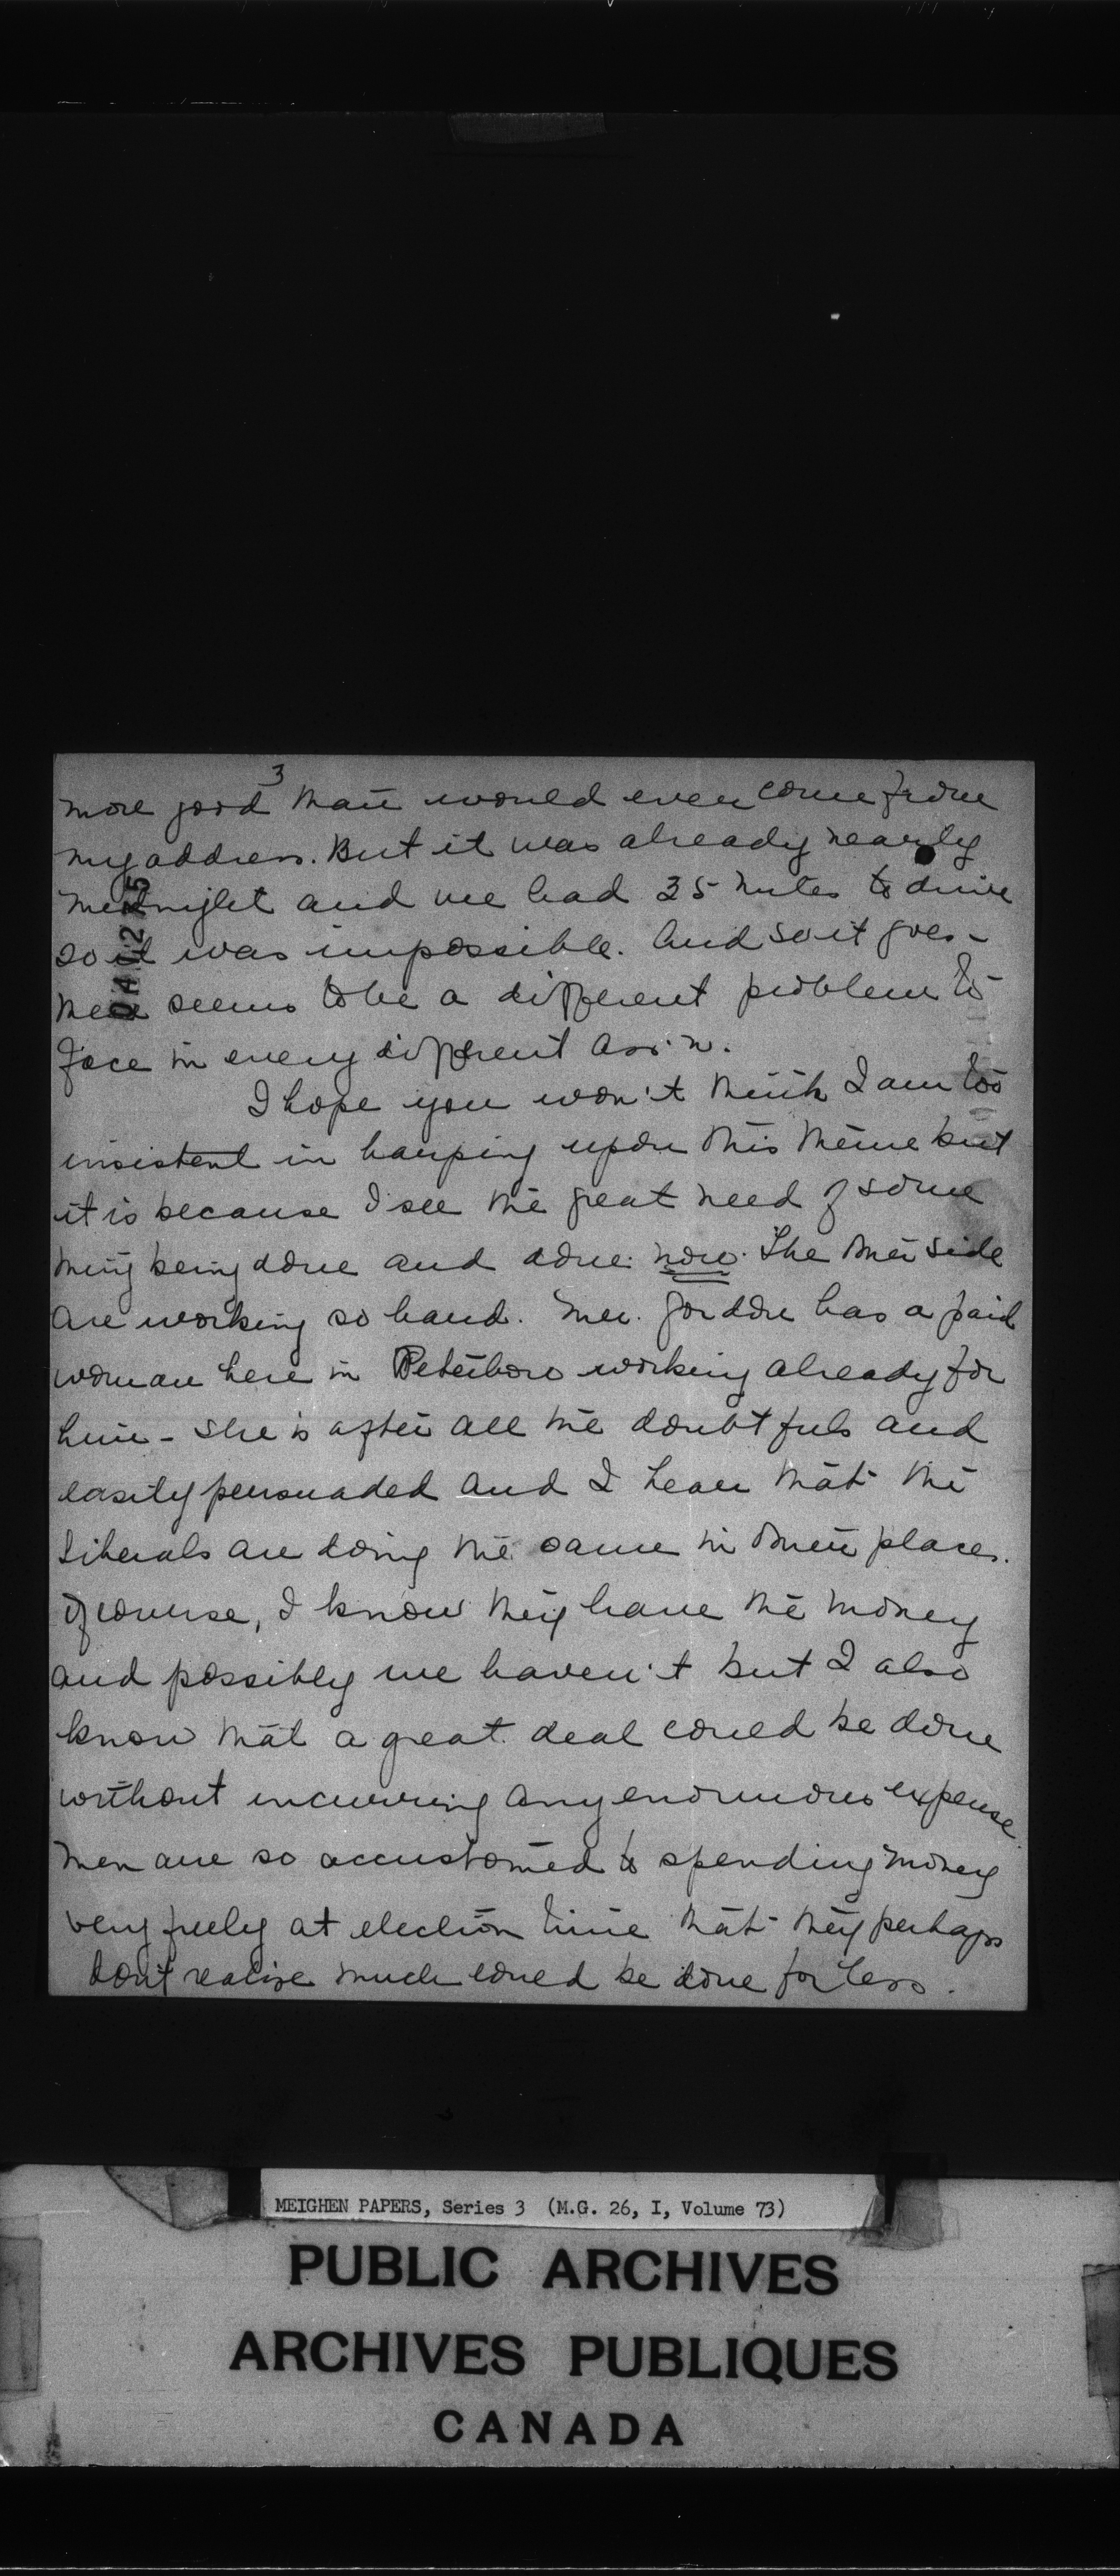 3
more good than would ever come from
my address. But it was already nearly
midnight and we had 35 miles to drive
so it was impossible. And so it goes -
there seems to be a different problem to
face in every different ass'n.
I hope you won't think I am too
insistent in harping upon this theme but
it is because I see the great need of some
thing being done and done now. The other side
are working so hard. Mr. Gordon has a paid
woman here in Peterboro working already for
him - she is after all the doubtfuls and
easily persuaded and I hear that the
Liberals are doing the same in other places.
Of course, I know they have the money
and possibly we haven't but I also
know that a great deal could be done
without incurring any enormous expense.
Men are so accustomed to spending money
very freely at election time that they perhaps
don't realize much could be done for less.
MEIGHEN PAPERS, Series 3 (M.G. 26, I, Volume 73)
PUBLIC ARCHIVES
ARCHIVES PUBLIQUES
CANADA